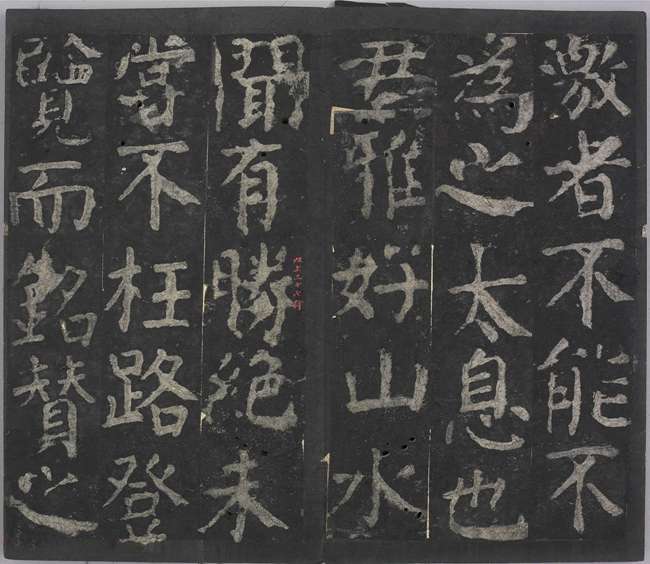 激者不能不
為之太息也
君雅好山水
聞有勝絕未
嘗不枉路登
覽而銘贊之